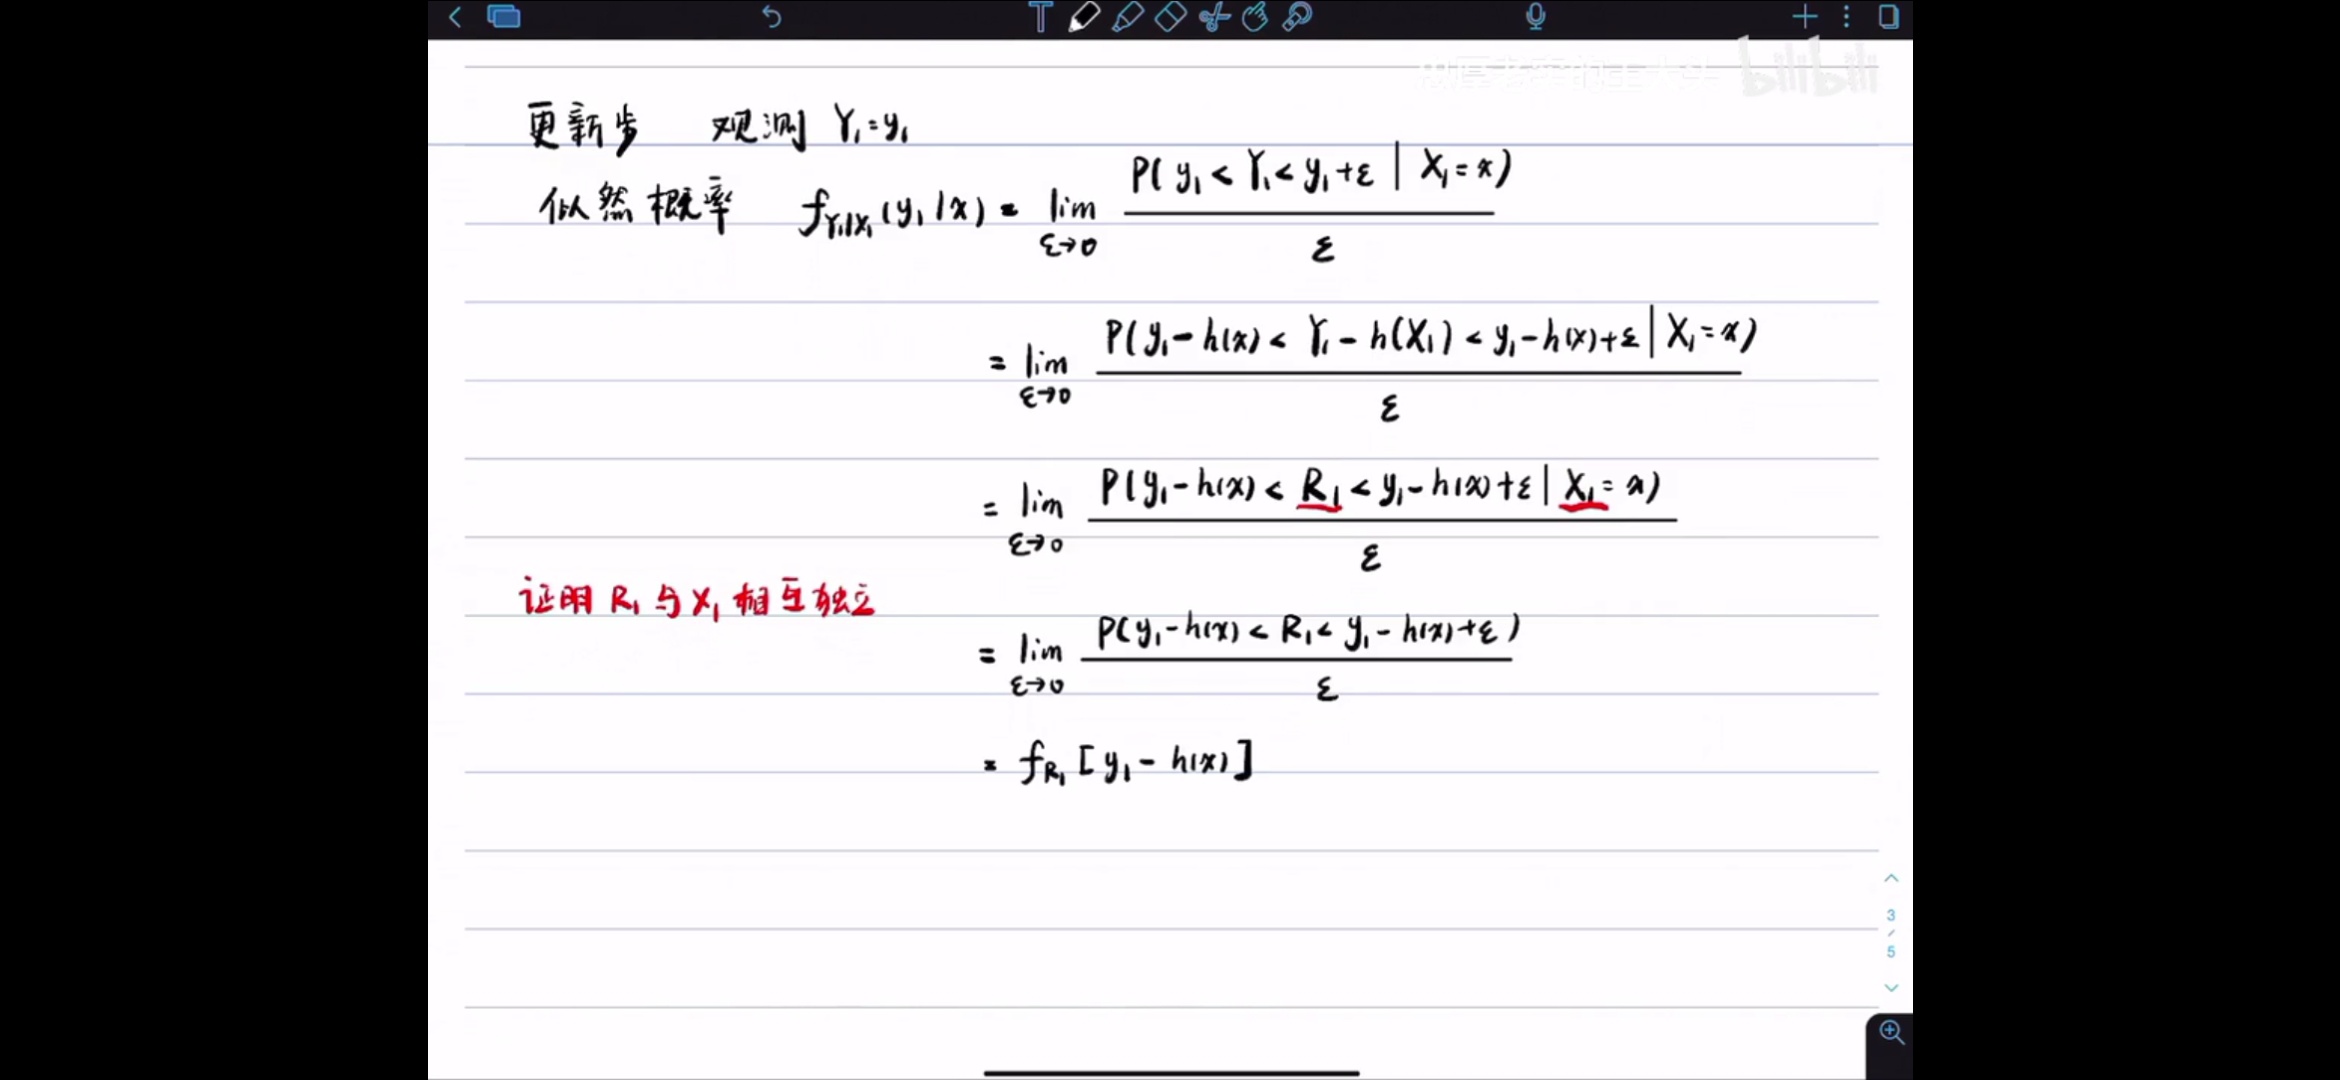 bilibili
更新步 观测 Y₁=y₁
似然概率 f_{Y₁|X₁}(y₁|x) = lim_{ε→0} P(y₁ < Y₁ < y₁+ε | X₁=x) / ε
= lim_{ε→0} P(y₁-h(x) < Y₁-h(X₁) < y₁-h(x)+ε | X₁=x) / ε
= lim_{ε→0} P(y₁-h(x) < R₁ < y₁-h(x)+ε | X₁=x) / ε
证明 R₁ 与 X₁ 相互独立
= lim_{ε→0} P(y₁-h(x) < R₁ < y₁-h(x)+ε) / ε
= f_{R₁}[y₁-h(x)]
3
/
5